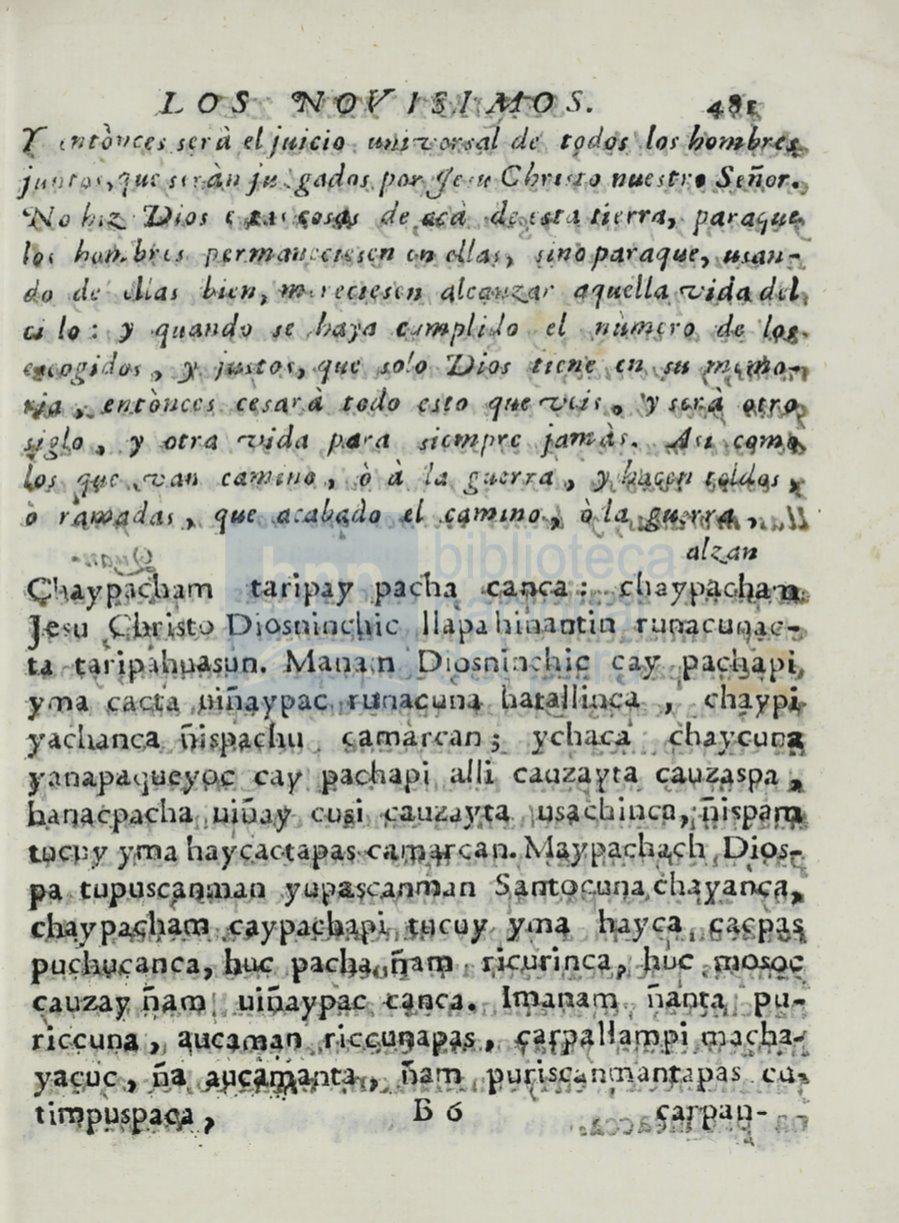 LOS NOVISIMOS. 481
Y entònces serà el juicio universal de todos los hombres
juntos, que seràn juzgados por Jesu Christo nuestro Señor.
No hiz Dios estas cosas de acà de esta tierra, paraque
los hombres permaneciesen en ellas, sino paraque, usan-
do de ellas bien, mereciesen alcanzar aquella vida del
cielo: y quando se haya cumplido el nùmero de los
escogidos, y justos, que solo Dios tiene en su memo-
ria, entònces cesarà todo esto que veis, y serà otro
siglo, y otra vida para siempre jamàs. Asi como
los que van camino, ò à la guerra, y hacen toldos,
ò ramadas, que acabado el camino, ò la guerra,
alzan
Chaypacham taripay pacha canca: chaypacham
Jesu Christo Diosninchic llapa hinantin runacunac-
ta taripahuasun. Manam Diosninchic cay pachapi
yma cacta uiñaypac runacuna hatallinca, chaypi
yachanca ñispachu camarcan; ychaca chaycuna
yanapaqueyoc cay pachapi alli cauzayta cauzaspa,
hanacpacha uiñay cusi cauzayta usachinca, ñispam
tucuy yma haycactapas camarcan. Maypachach Dios-
pa tupuscanman yupascanman Santocuna chayanca,
chaypacham caypachapi tucuy yma hayca cacpas
puchucanca, huc pacha ñam ricurinca, huc mosoc
cauzay ñam uiñaypac canca. Imanam ñanta pu-
riccuna, aucaman riccunapas, carpallampi macha-
yacuc, ña aucamanta, ñam puriscanmantapas cu-
timpuspaca, B 6 carpan-
biblioteca